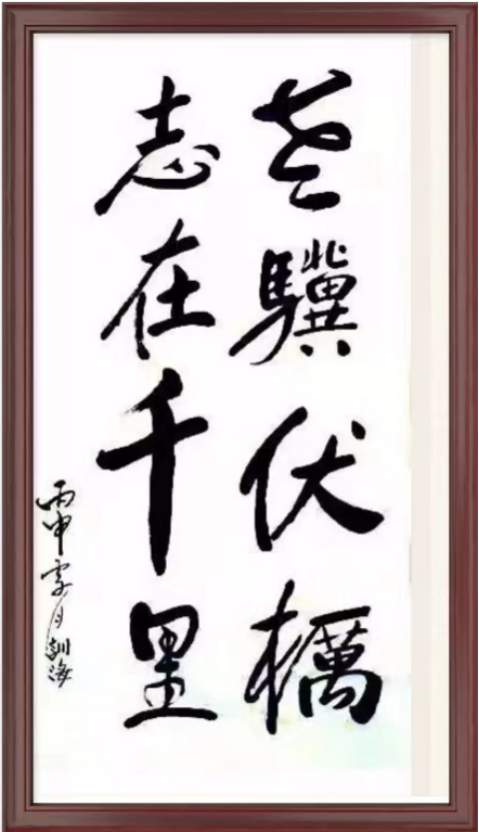 老驥伏櫪
志在千里
丙申雪月訓海